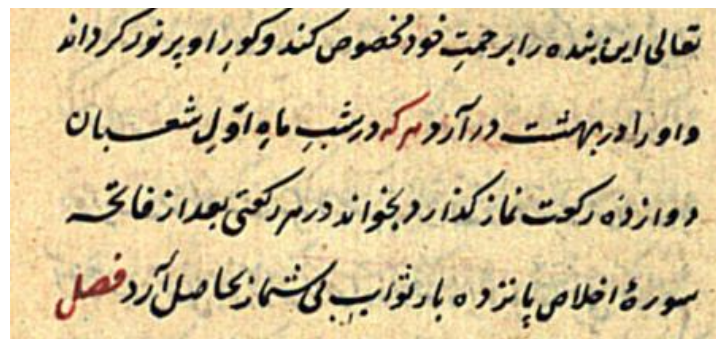 تعالی این بنده را برحمتِ خود مخصوص کند و کورِ او پر نور کرداند
و او را در بهشت در آرد هر که در شبِ ماهِ اوّلِ شعبان
دوازده رکعت نماز کذارد بخواند در هر رکعتی بعد از فاتحه
سورهٔ اخلاص پانزده بار ثوابِ بی شمار بحاصل آرد فصل